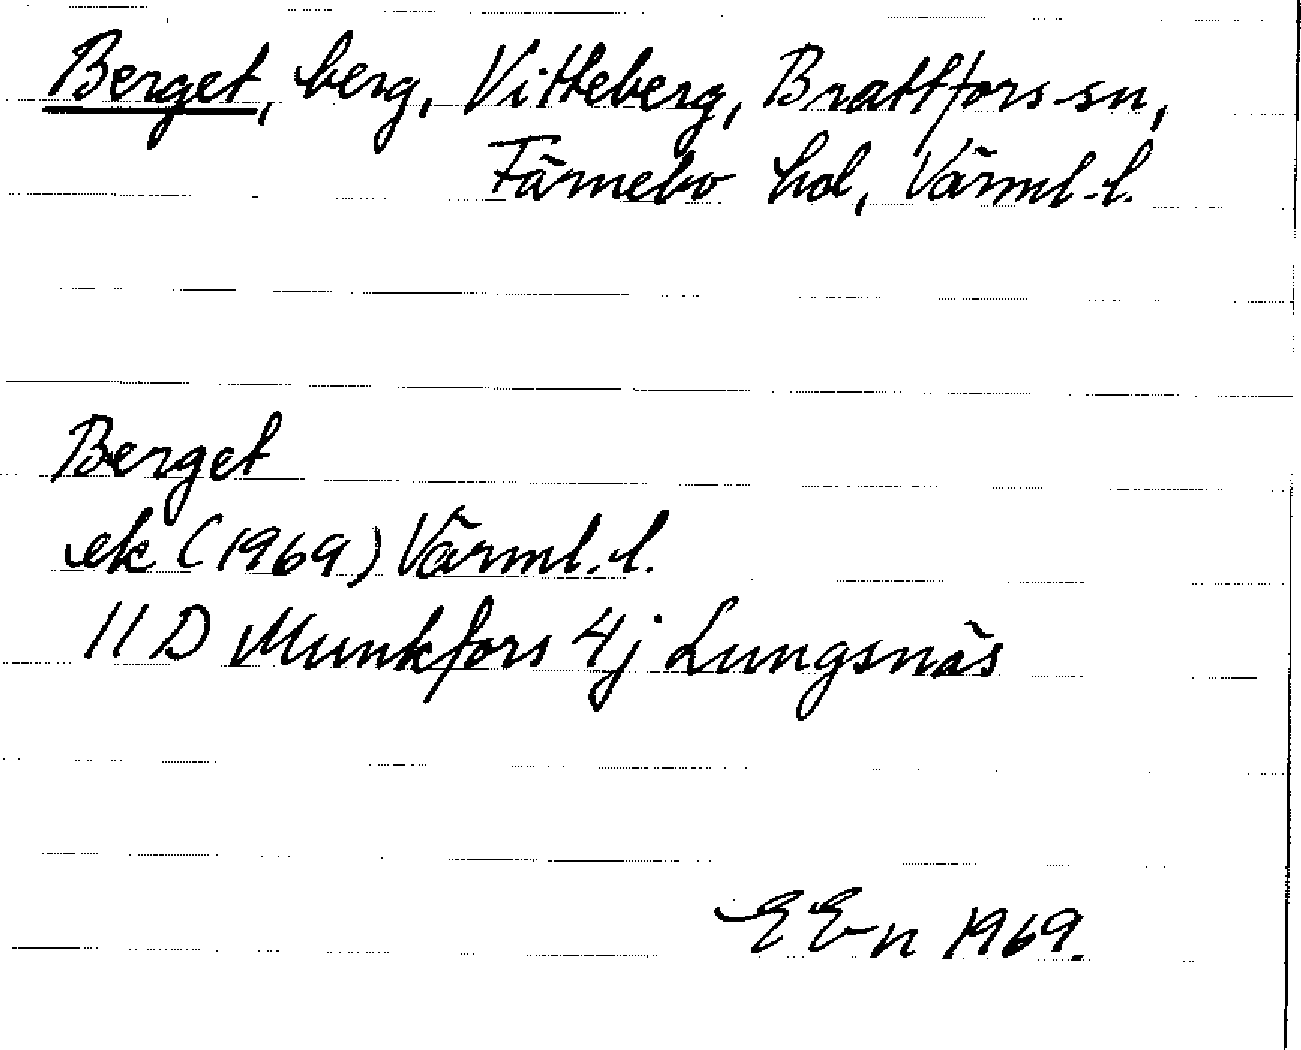 Berget, berg, Vitteberg, Brattfors sn,
Färnebo hd, Värml. l.
Berget
ek (1969) Värml. l.
11 D Munkfors 4j Lungsnäs
E En 1969.